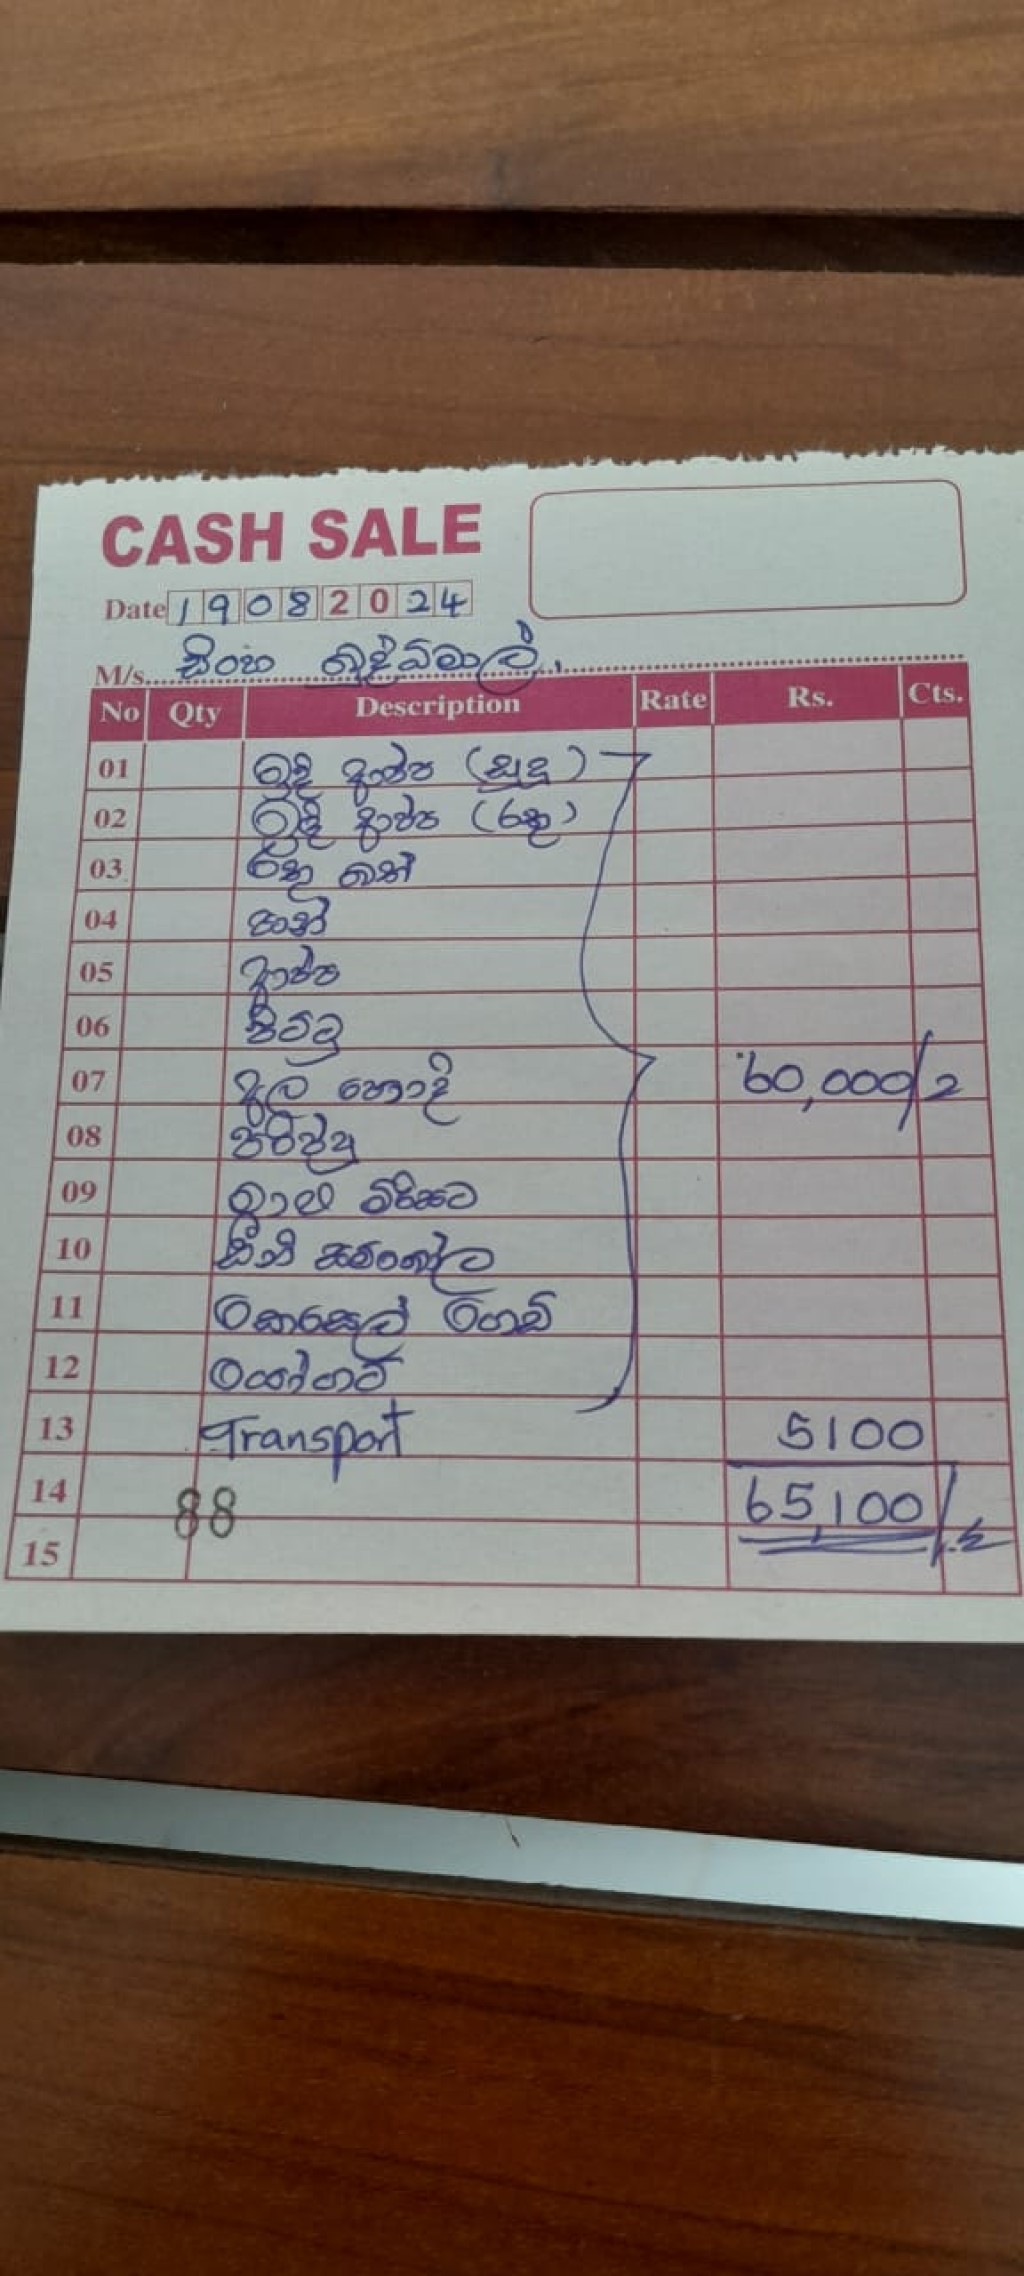 CASH SALE
Date 19082024
M/s. සිංහ
No Qty Description Rate Rs. Cts.
01 ඉඳි ආප්ප (සුදු)
02 ඉඳි ආප්ප (රතු)
03 රතු බත්
04 පාන්
05 ආප්ප
06 පිට්ටු
07 අල හොදි 60,000/=
08 පරිප්පු
09 මිරිසට
10 සීනි සම්බෝල
11 කෙසෙල් ගෙඩි
12 යෝගට්
13 Transport 5100
14 88 65,100/=
15